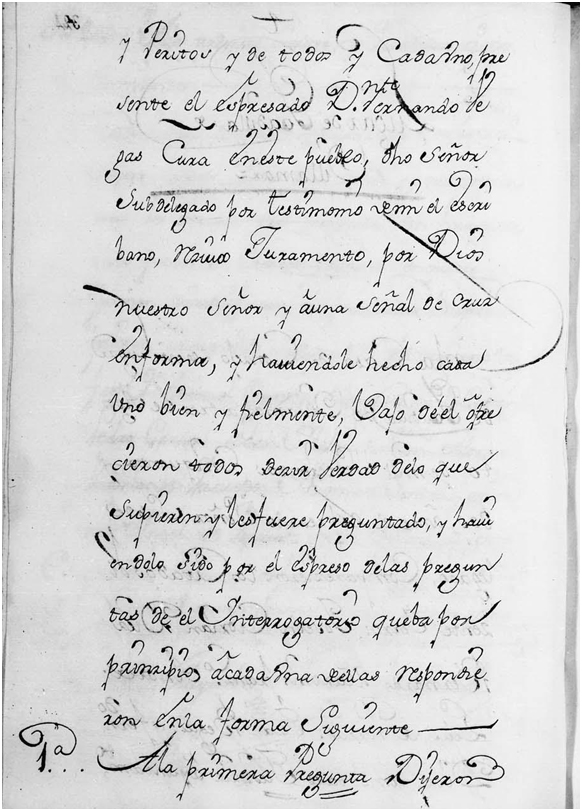 y Peritos y de todos y Cada Uno, pre
sente el espresado D.nte Fernando Ve
gas Cura en este pueblo, dho Señor
Subdelegado por testimonio de mi el escri
bano, Rzivio Juramento, por Dios
nuestro Señor y a una Señal de Cruz
en forma, y haviendole hecho cada
Uno bien y fielmente, bajo de él ofre
cieron todos dezir Verdad delo que
Supieren y les fuere preguntado, y havi
endolo Sido por el espreso delas pregun
tas de el Interrogatorio que ba por
prinzipio, a cada Una dellas Respondie
ron en la forma Siguiente
1ª... A la primera Pregunta Dijeron